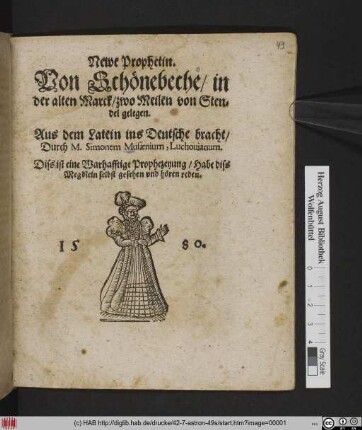 49
Newe Prophetin.
Von Schönebeche/ in
der alten Marck/ zwo Meilen von Sten-
del gelegen.
Aus dem Latein ins Deutsche bracht/
Durch M. Simonem Musænium, Luchouianum.
Diss ist eine Warhafftige Prophezeyung/ Habe diss
Megdlein selbst gesehen und hören reden.
15 80.
Herzog August Bibliothek
Wolfenbüttel
0 1 2 3 4
Gray Scale
(c) HAB http://diglib.hab.de/drucke/42-7-astron-49s/start.htm?image=00001